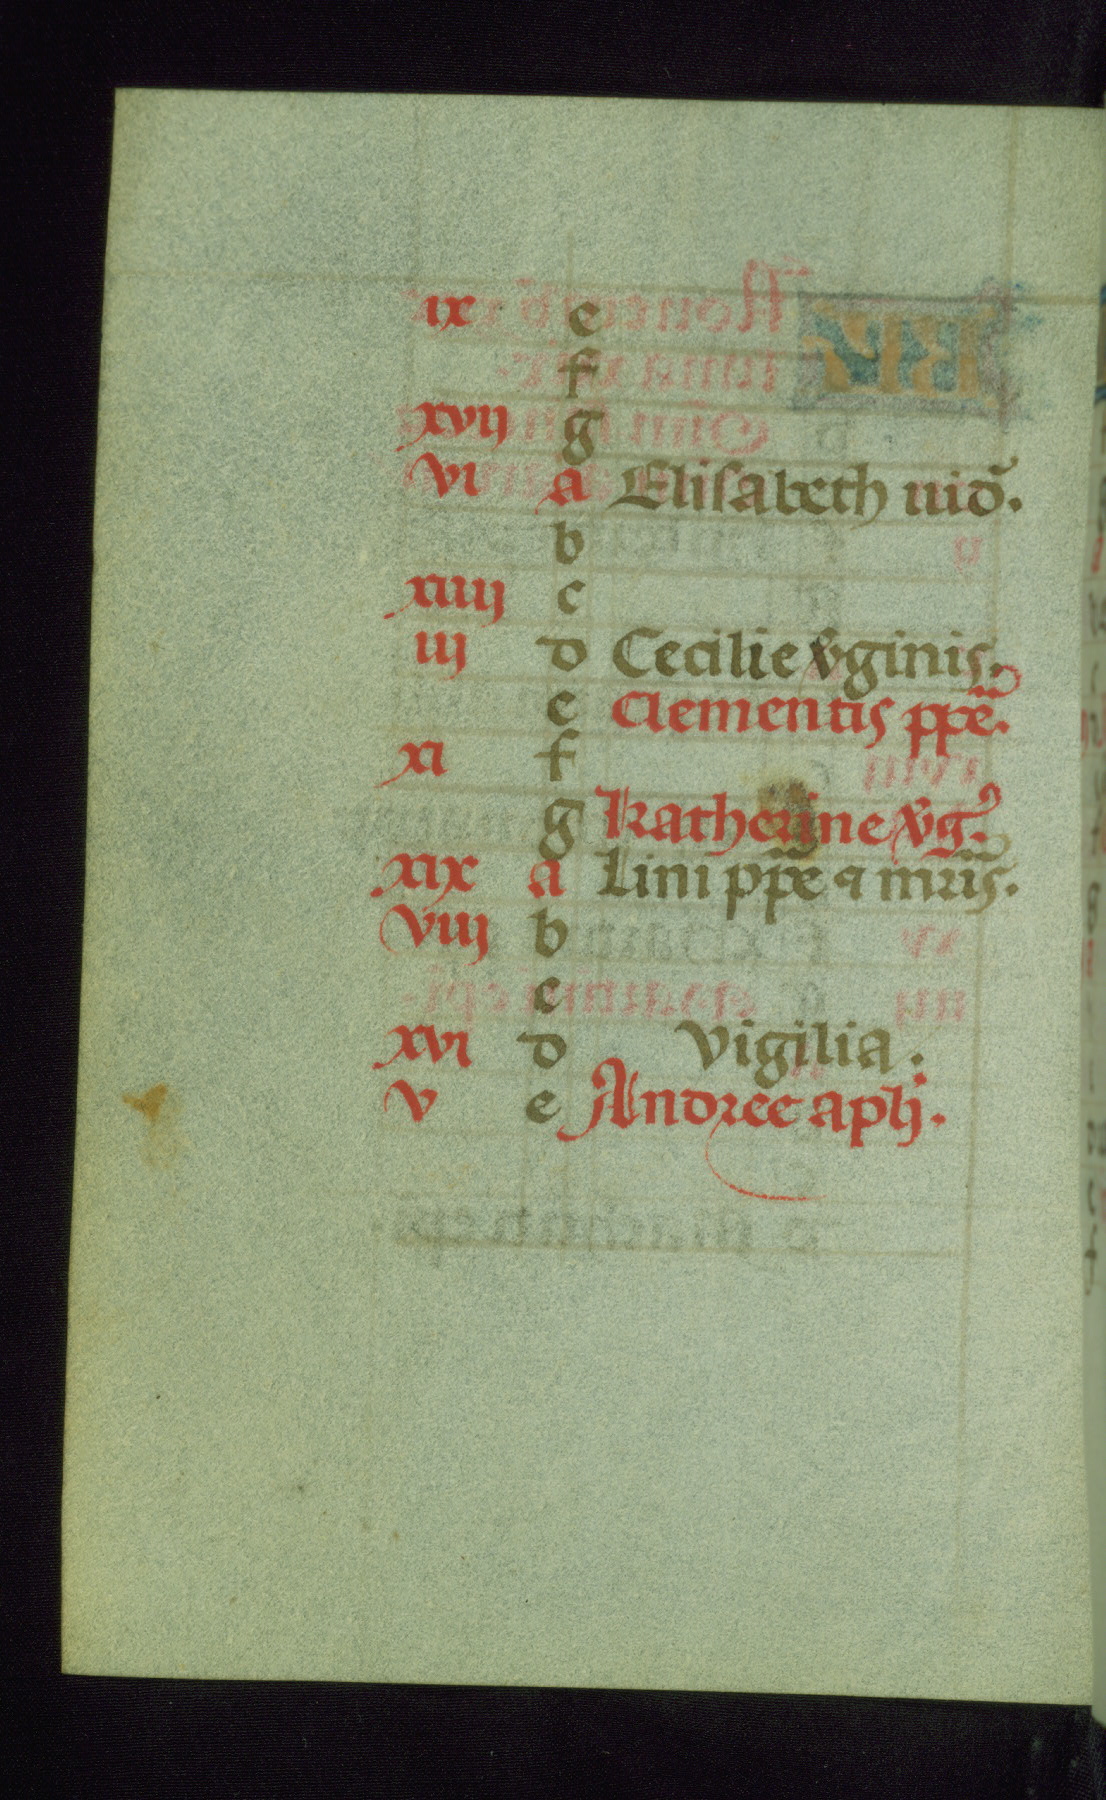 ix e
f
xvij g
vi a Elisabeth vid̄.
b
xiiij c
iij d Cecilie v̄ginis.
e Clementis pp̄e.
xi f
g Katherine v̄g.
xix a Lini pp̄e ⁊ mr̄is.
viij b
c
xvi d Vigilia.
v e Andree apl̄i.